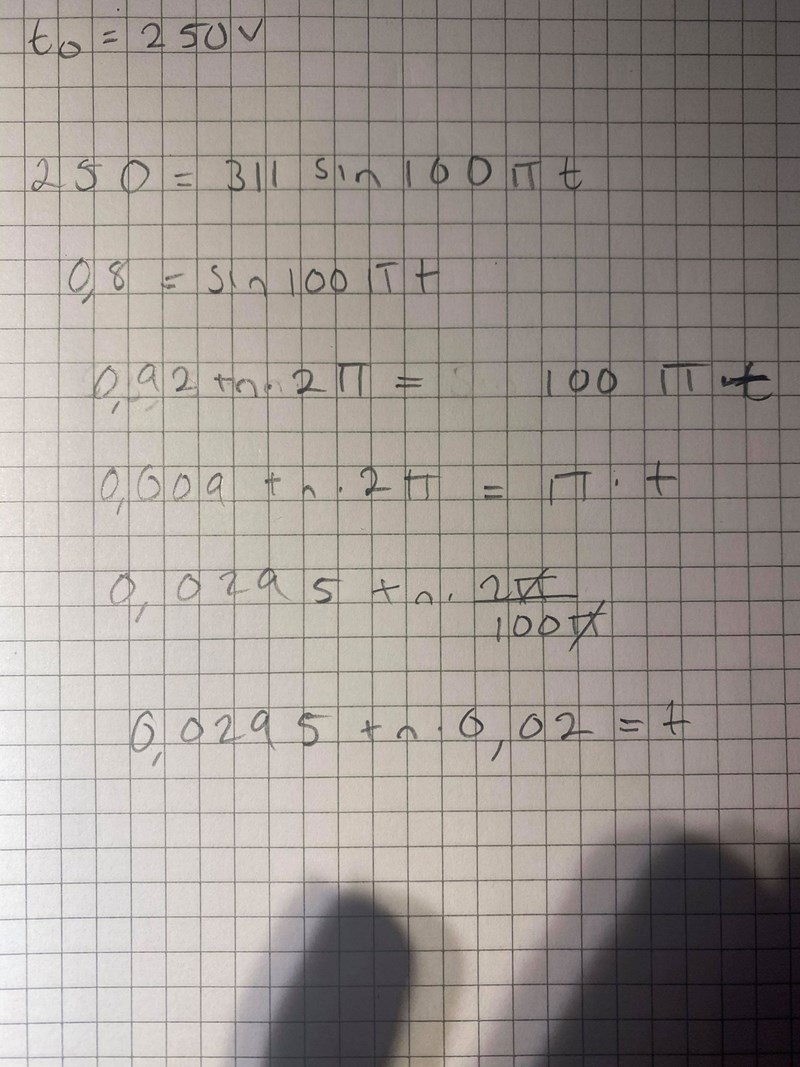 to = 250V
250 = 311 sin 100 π t
0,8 = sin 100 π t
0,92 + n · 2π = 100 π t
0,009 + n · 2π = π · t
0,0295 + n · 2π/100π
0,0295 + n · 0,02 = t